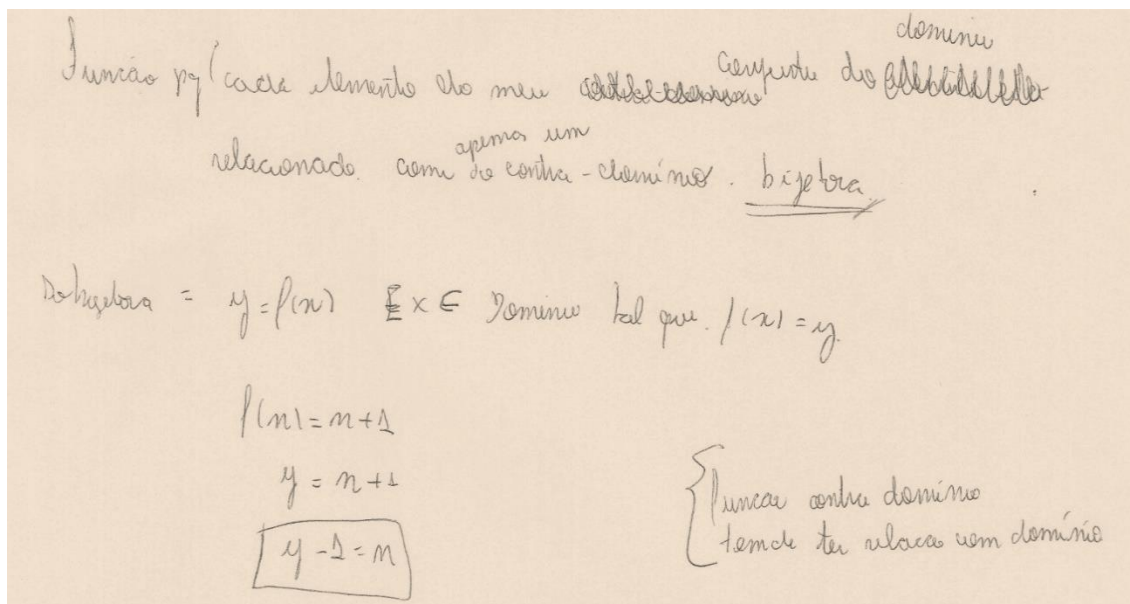 Funcão pq/ cada elemento do meu conjunto do dominio
relacionado com apenas um do contra-domínio. bijetora.
= y=f(n) E x ∈ Dominio tal que f(n)=y.
f(n)=n+1
y=n+1
y-1=n
funcao contra domínio
temde ter relacao com domínio